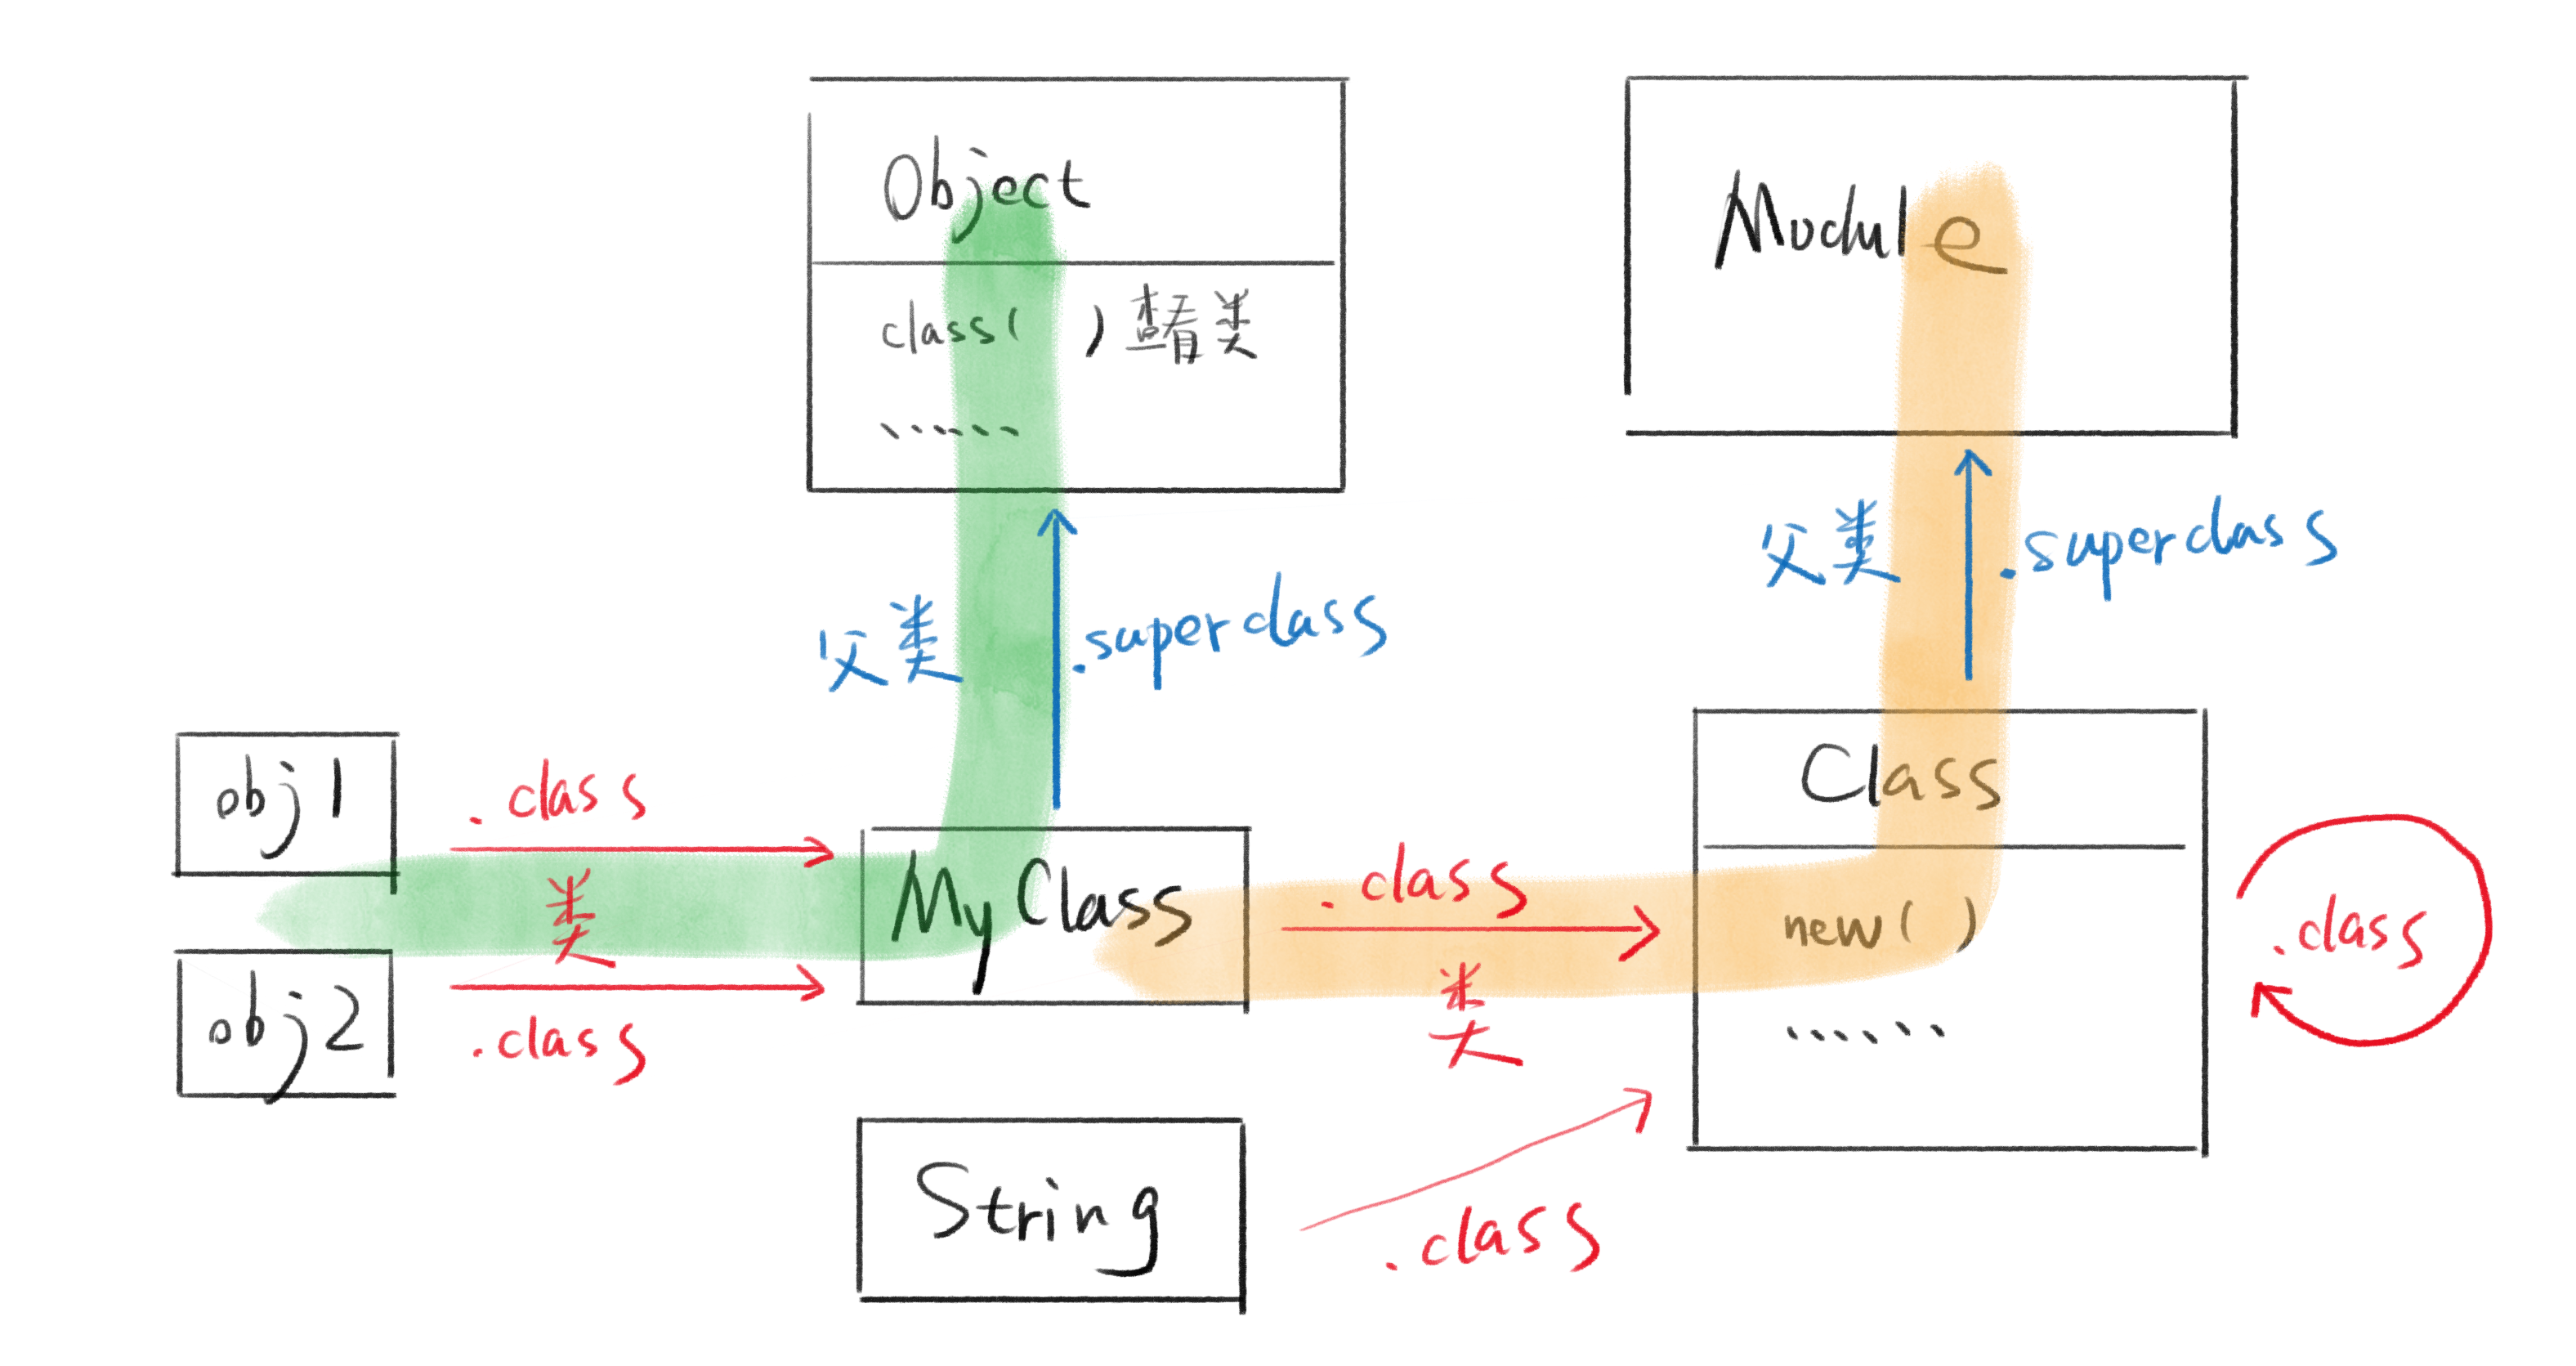 Object
class( ) 查看类
......
Module
父类
.superclass
父类
.superclass
obj1
.class
类
obj2
.class
MyClass
.class
类
Class
new( )
......
.class
String
.class